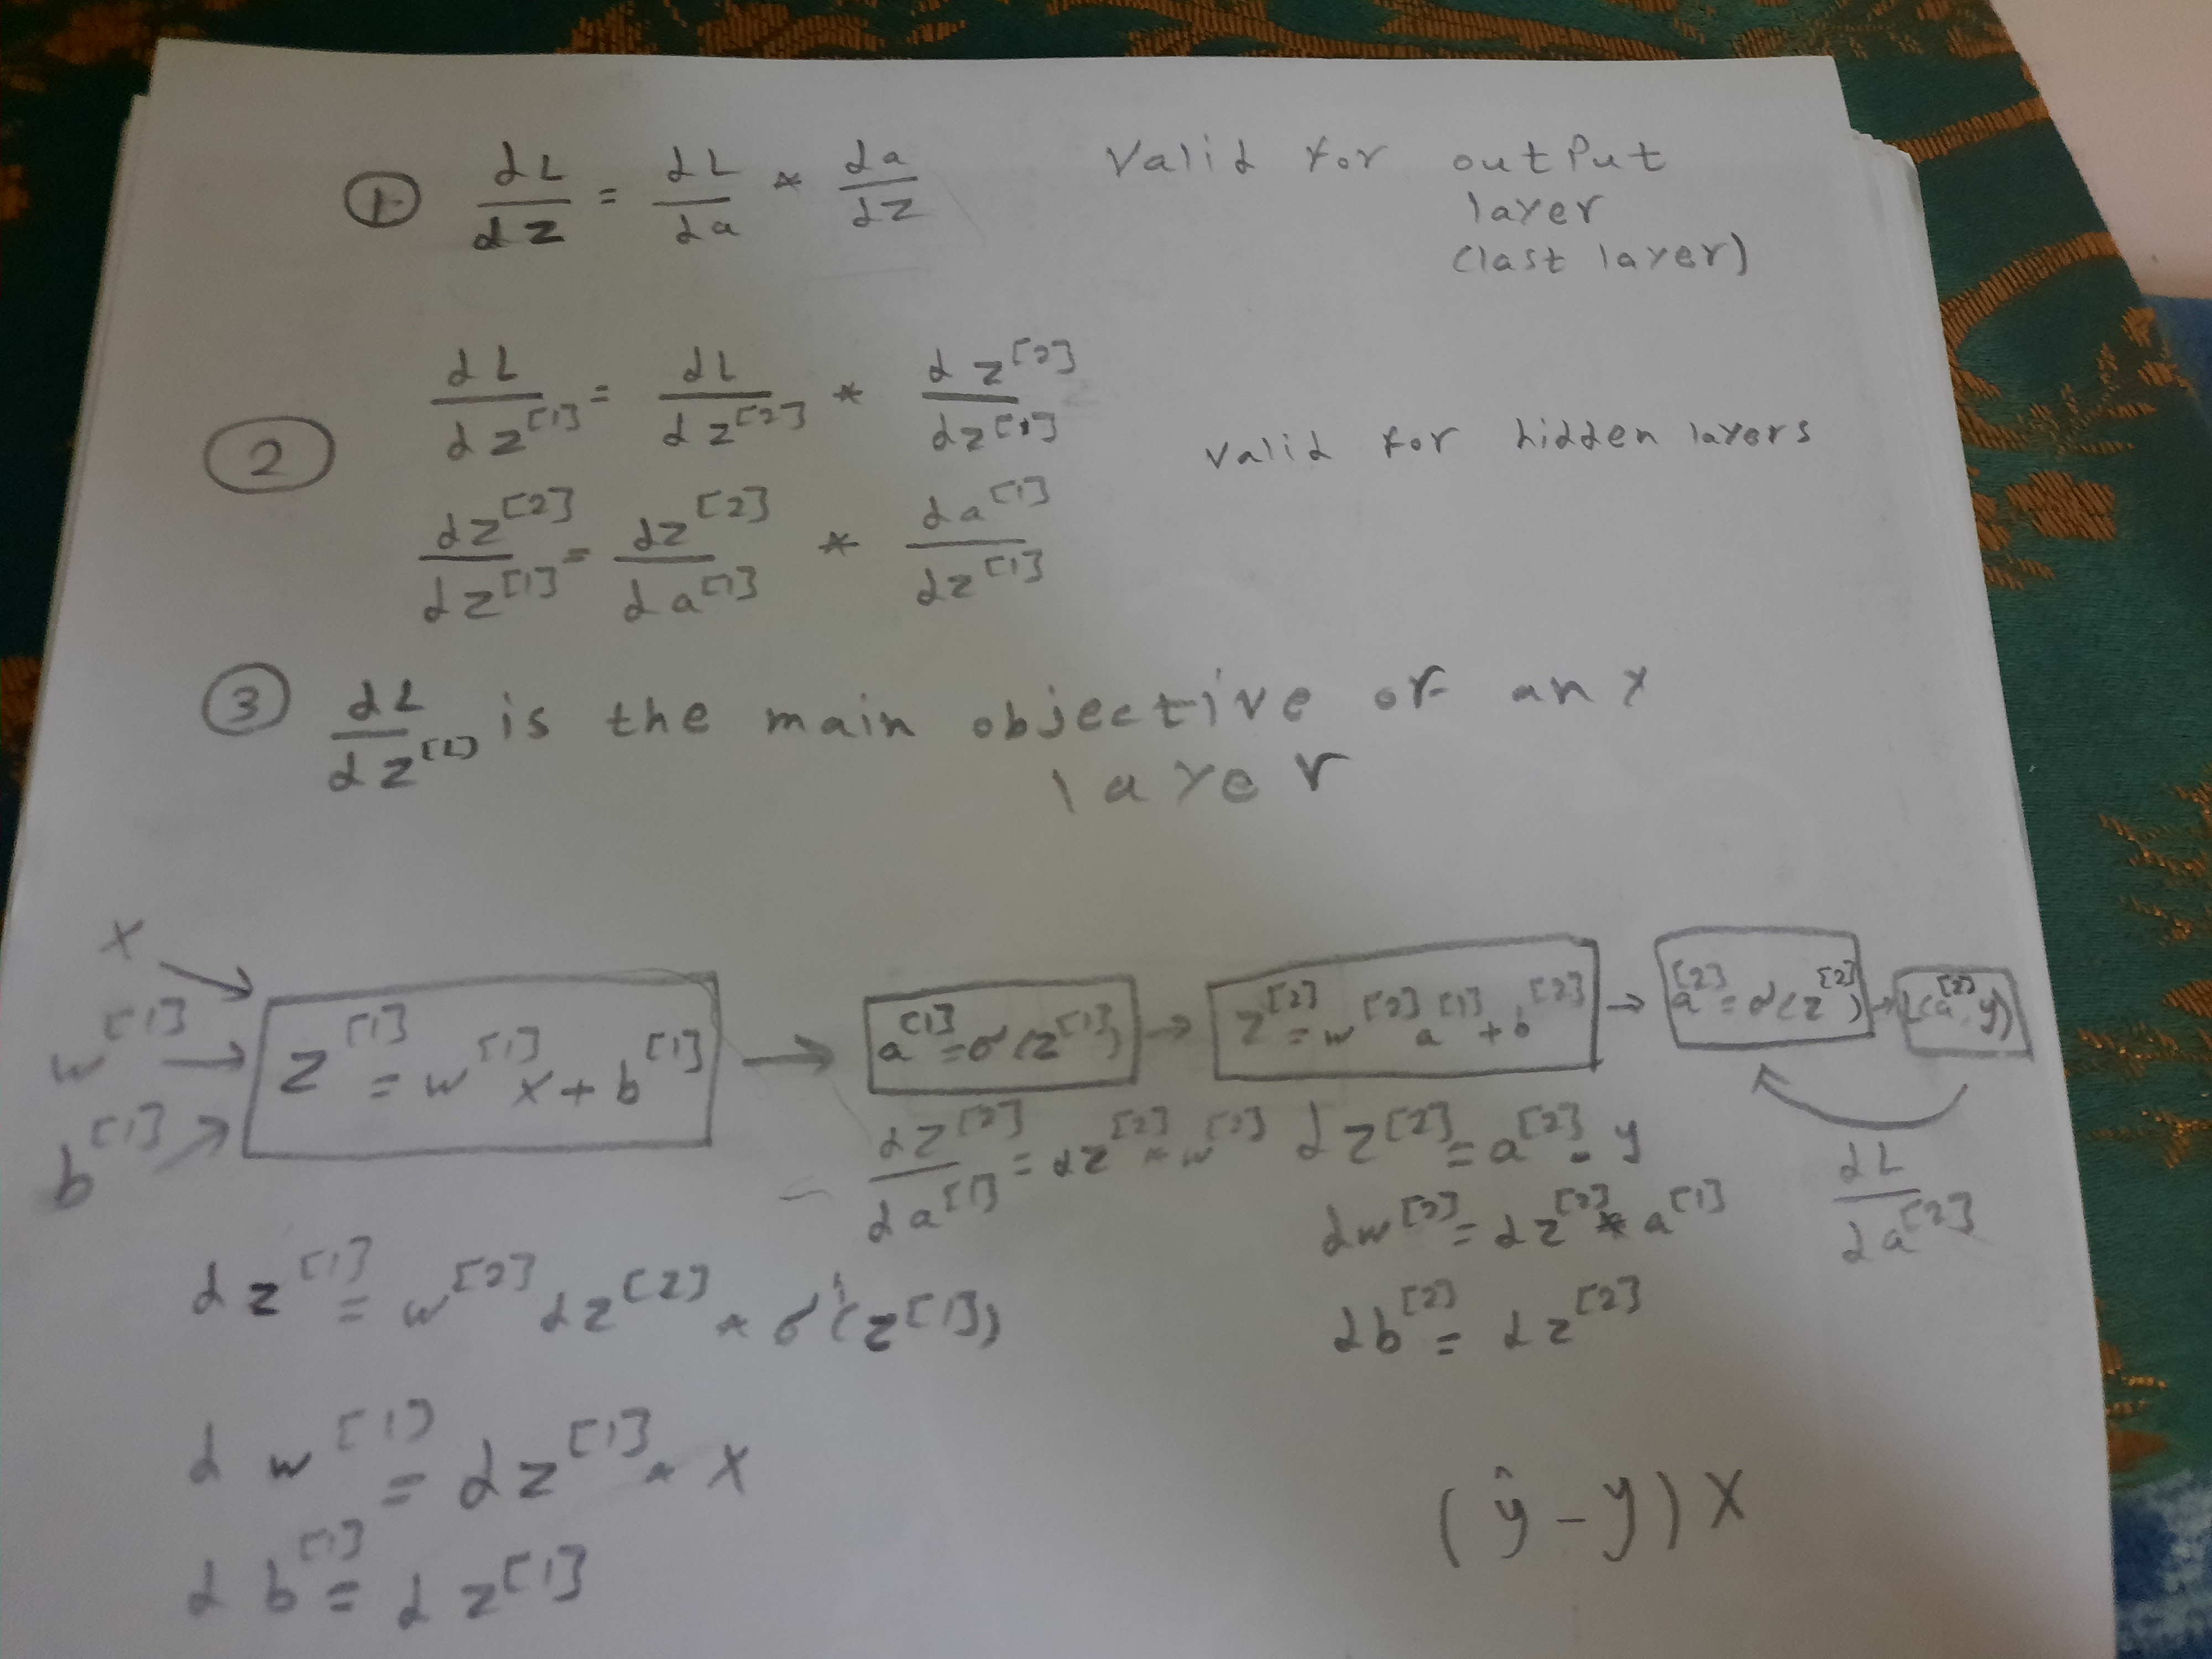 ① dL/dz = dL/da * da/dz valid for output
layer
(last layer)
② dL/dz^[1] = dL/dz^[2] * dz^[2]/dz^[1] valid for hidden layers
dz^[2]/dz^[1] = dz^[2]/da^[1] * da^[1]/dz^[1]
③ dL/dz^[L] is the main objective of any
layer
x
w^[1]
b^[1]
z^[1] = w^[1] x + b^[1] → a^[1] = σ(z^[1]) → z^[2] = w^[2] a^[1] + b^[2] → a^[2] = σ(z^[2]) → L(a^[2], y)
dz^[2]/da^[1] = dz^[2] * w^[2]
dz^[2] = a^[2] - y
dw^[2] = dz^[2] * a^[1]
db^[2] = dz^[2]
dL/da^[2]
dz^[1] = w^[2] * dz^[2] * σ'(z^[1])
dw^[1] = dz^[1] * x
db^[1] = dz^[1]
(ŷ - y) x